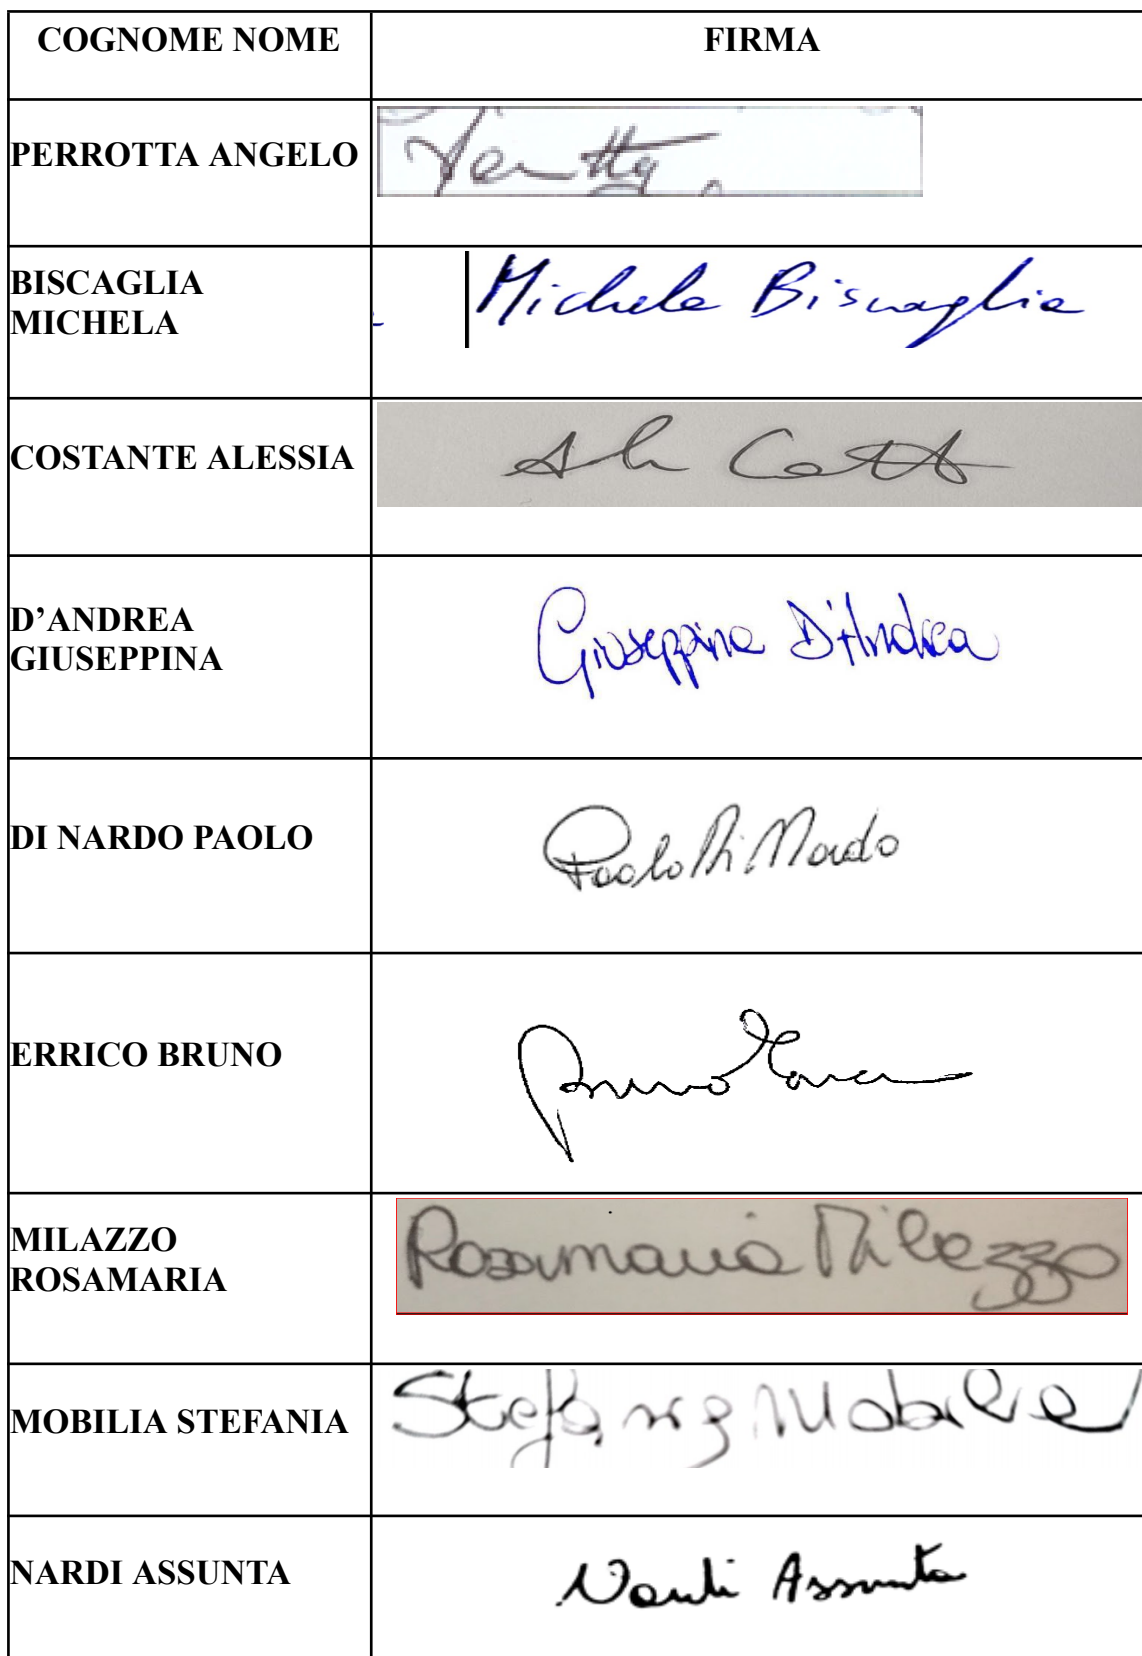 COGNOME NOME FIRMA
PERROTTA ANGELO
BISCAGLIA
MICHELA
Michela Biscaglia
COSTANTE ALESSIA
D’ANDREA
GIUSEPPINA
Giuseppina D'Andrea
DI NARDO PAOLO
Paolo Di Nardo
ERRICO BRUNO
Bruno
MILAZZO
ROSAMARIA
Rosamaria Milazzo
MOBILIA STEFANIA
Stefania Mobilia
NARDI ASSUNTA
Nardi Assunta